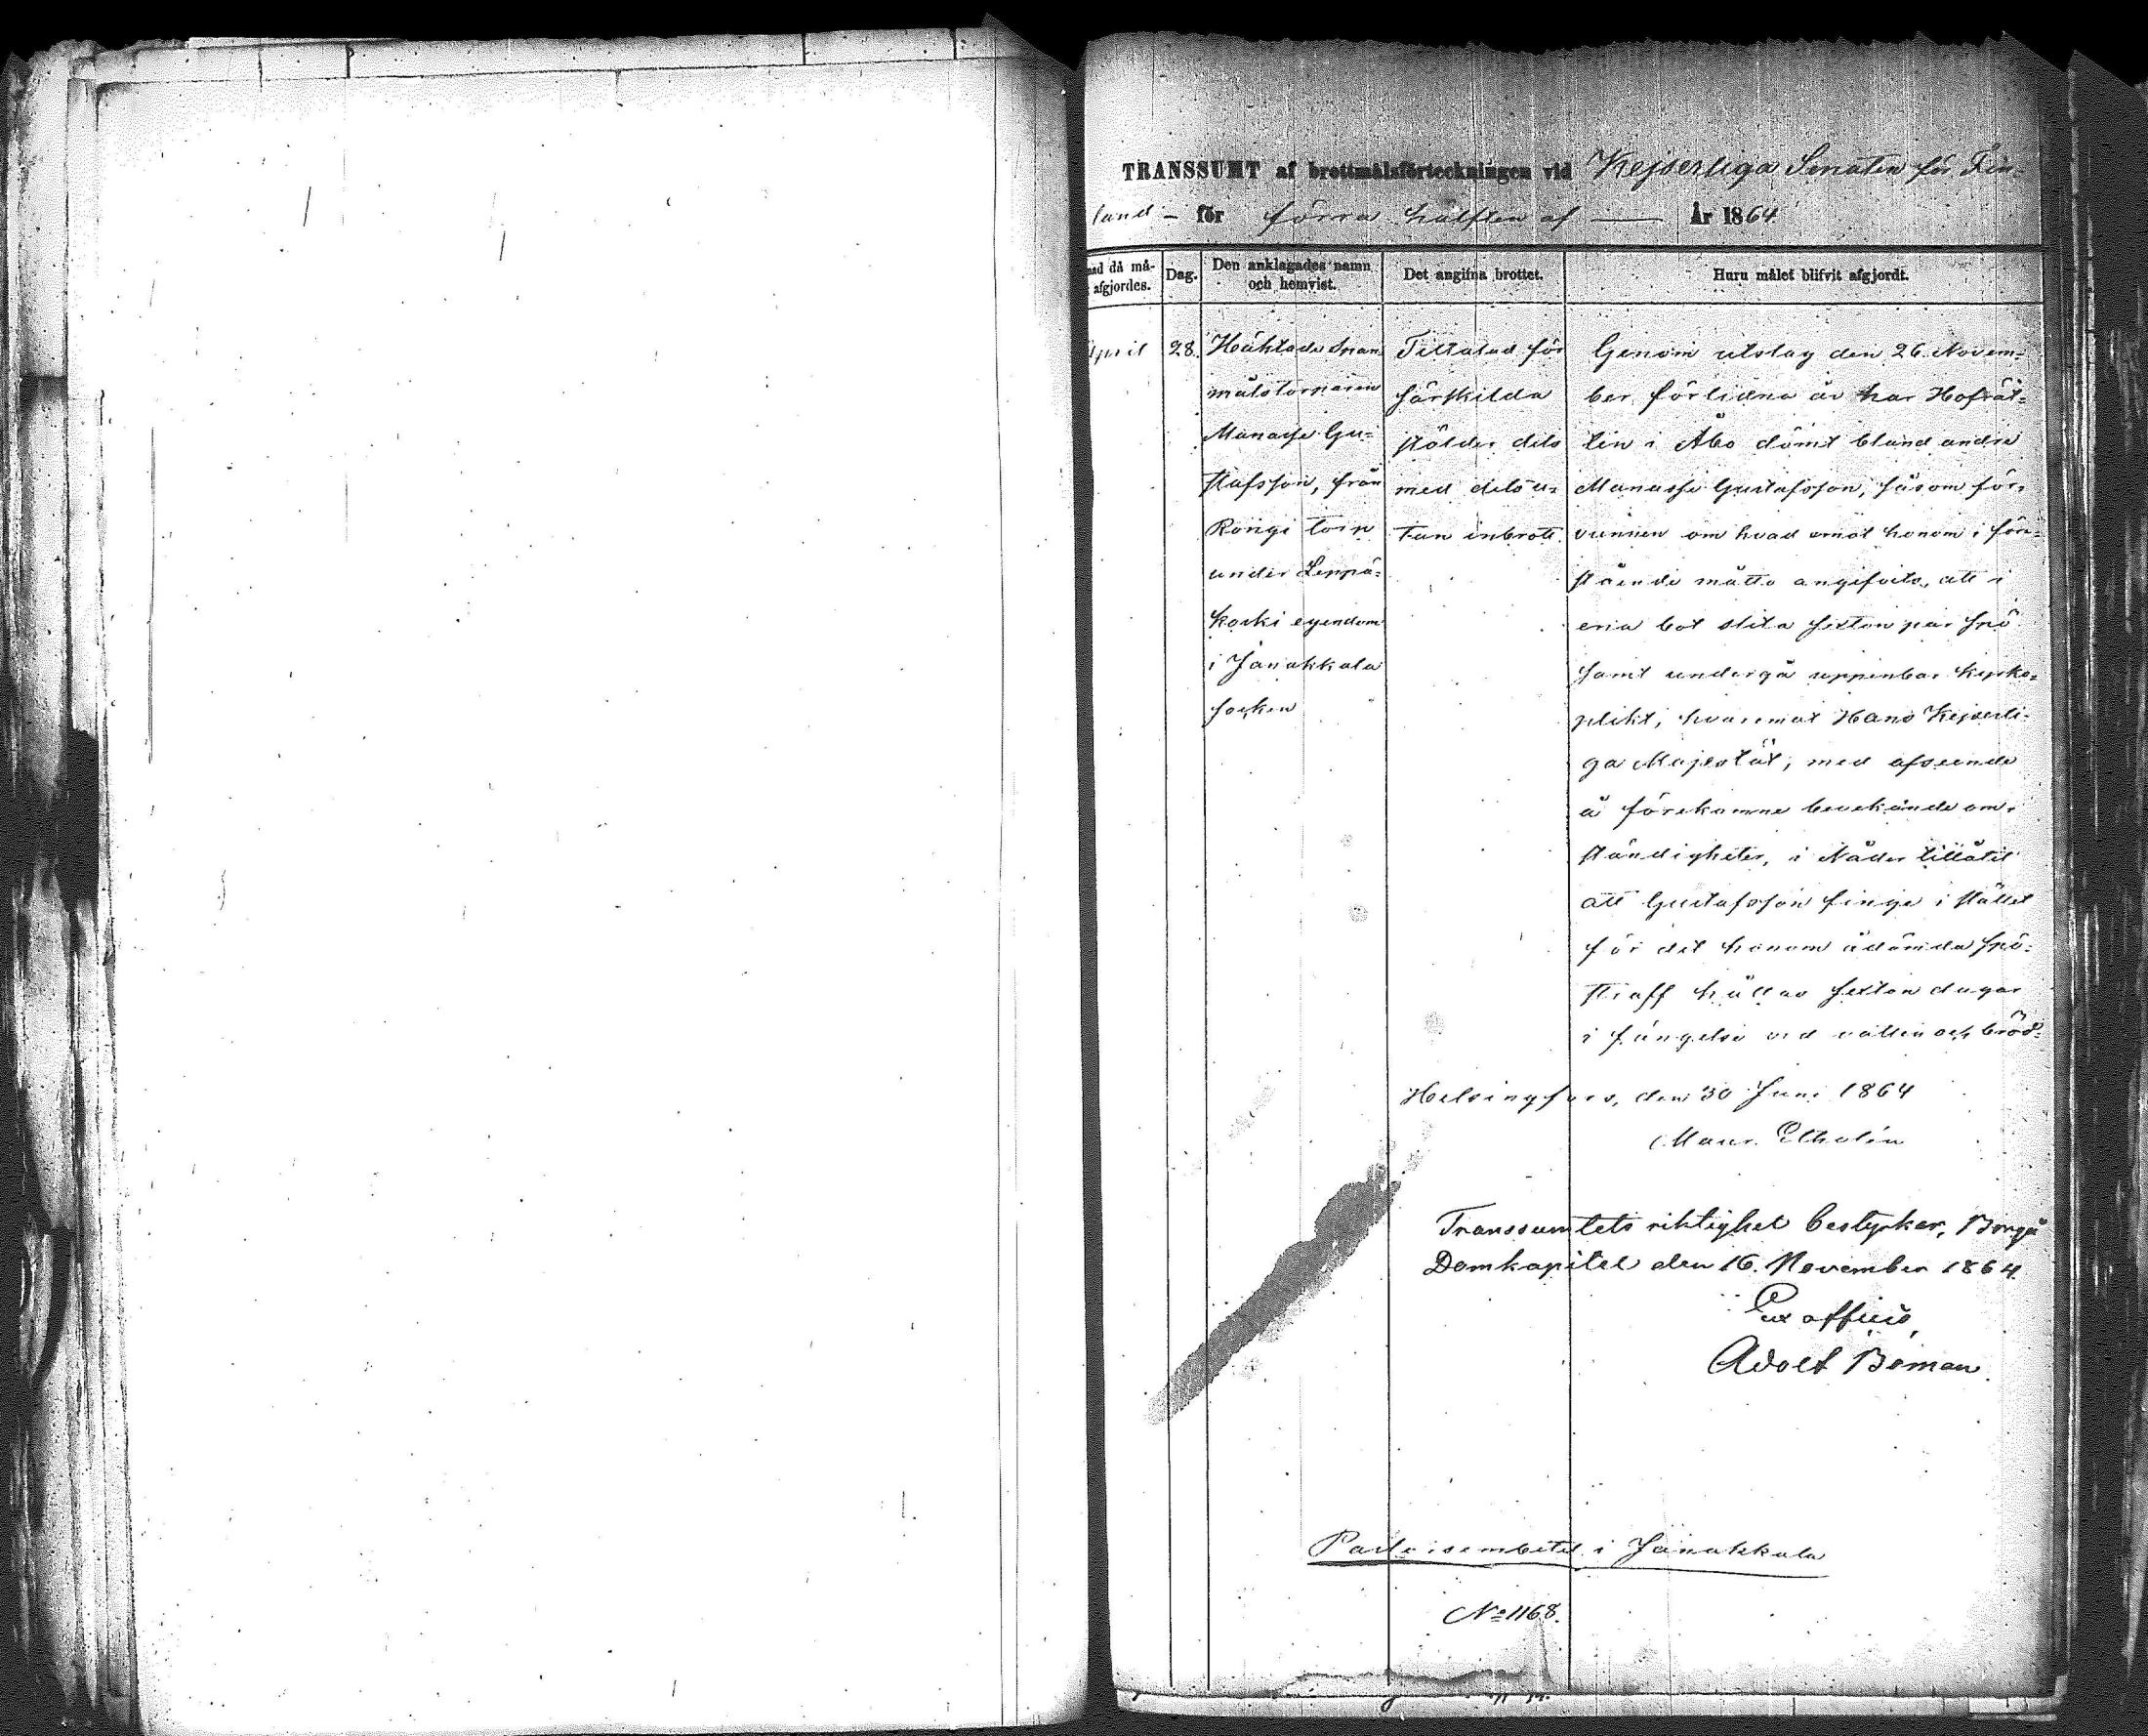 TRANSSUMT af brottmålsförteckningen vid Kejserliga Senaten för Fin-
land - för förra hälften af — År 1864.
nad då må-
afgjordes.
Dag.
Den anklagades namn
och hemvist.
Det angifna brottet.
Huru målet blifvit afgjordt.
April
28.
Häktade span-
målstorparen
Manasse Gu-
stafsson, från
Rongi torp
under Leppä-
koski egendom
i Janakkala
socken
Tilltalad för
särskilda
stölder dels
med dels u-
tan inbrott.
Genom utslag den 26 Novem-
ber förlidna år har Hofrät-
ten i Åbo dömt bland andre
Manasse Gustafsson, såsom för-
vunnen om hvad emot honom i före-
stående måtto angifvits, att i
ena bot slita sexton par spö
samt undergå uppenbar kyrko-
plikt, hvaremot Hans Kejserli-
ga Majestät, med afseende
å förekomne bevekande om-
ständigheter, i Nåder tillåtit
att Gustafsson finge i stället
för det honom ådömda spö-
straff hållas sexton dagar
i fängelse vid vatten och bröd.
Helsingfors, den 30 Juni 1864
Maur. Etholén
Transsumtets riktighet bestyrker, Borgå
Domkapitel den 16. November 1864.
Ex officio,
Adolf Boman.
Pastorsembetet i Janakkala
No 1168.